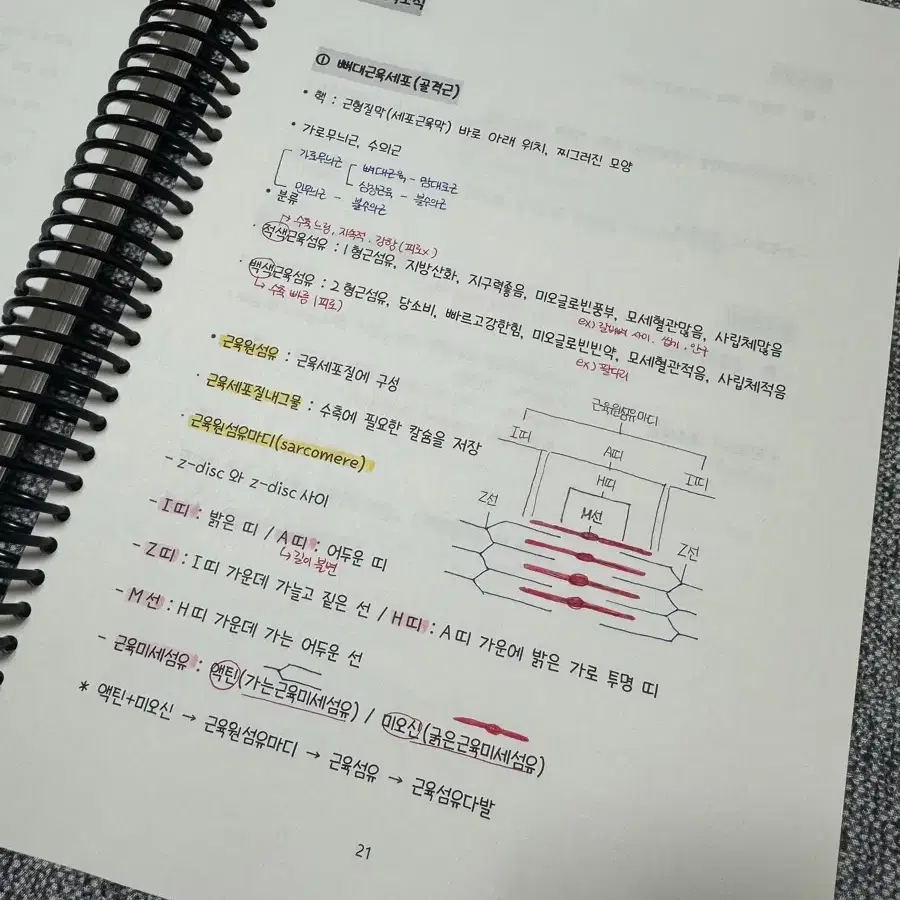 ① 뼈대근육세포(골격근)
• 핵 : 근형질막(세포근육막) 바로 아래 위치, 찌그러진 모양
• 가로무늬근, 수의근
가로무늬근 뼈대근육 - 맘대로근
심장근육 - 불수의근
민무늬근 - 불수의근
• 분류
↳ 수축 느림, 지속적, 강함(피로x)
· 적색근육섬유 : 1형근섬유, 지방산화, 지구력좋음, 미오글로빈풍부, 모세혈관많음, 사립체많음
ex) 갈비뼈 사이
· 백색근육섬유 : 2형근섬유, 당소비, 빠르고강한힘, 미오글로빈빈약, 모세혈관적음, 사립체적음
↳ 수축 빠름 (피로)
ex) 팔다리
• 근육원섬유 : 근육세포질에 구성
· 근육세포질내그물 : 수축에 필요한 칼슘을 저장
· 근육원섬유마디(sarcomere)
- z-disc 와 z-disc 사이
- I띠 : 밝은 띠 / A띠 : 어두운 띠
↳ 길이 불변
- Z띠 : I띠 가운데 가늘고 짙은 선 / H띠 : A띠 가운에 밝은 가로 투명 띠
- M선 : H띠 가운데 가는 어두운 선
- 근육미세섬유 : 액틴(가는근육미세섬유) / 미오신(굵은근육미세섬유)
* 액틴+미오신 → 근육원섬유마디 → 근육섬유 → 근육섬유다발
근육원섬유마디
I띠
A띠
I띠
H띠
Z선
M선
Z선
21